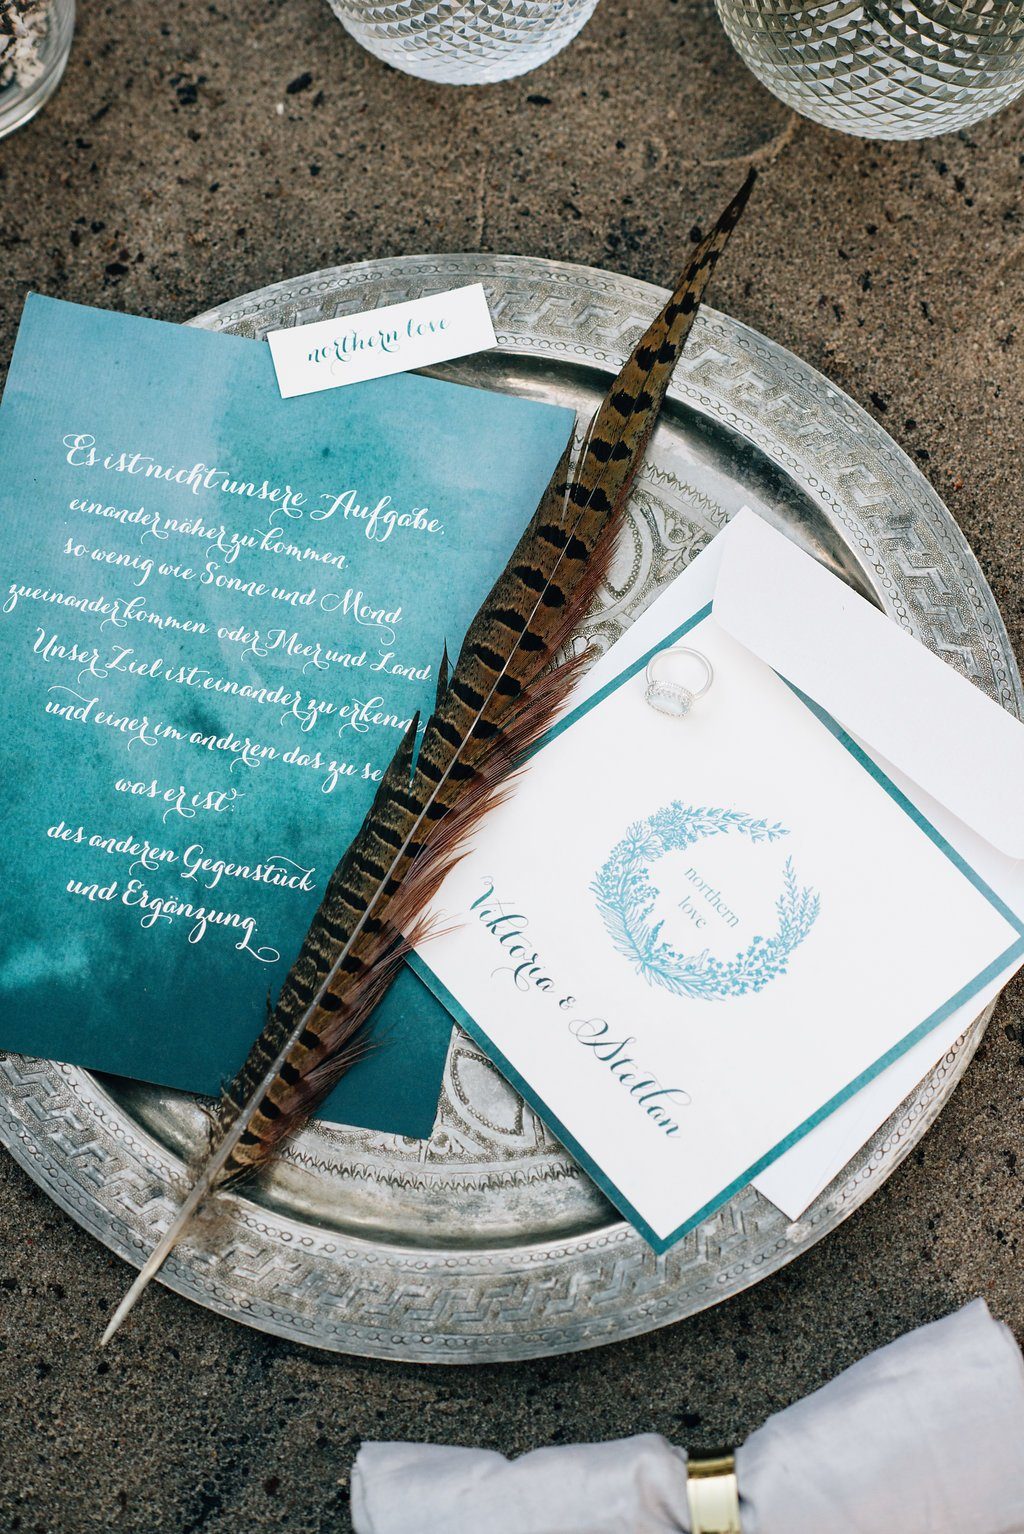 northern love
Es ist nicht unsere Aufgabe,
einander näher zu kommen,
so wenig wie Sonne und Mond
zueinander kommen oder Meer und Land.
Unser Ziel ist, einander zu erkenne
und einer im anderen das zu se
was er ist:
des anderen Gegenstück
und Ergänzung.
northern
love
Viktoria & Stellan